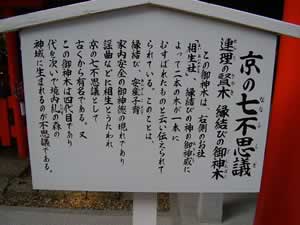 京の七不思議
連理の賢木 縁結びの御神木
この御神木は、右側のお社
「相生社」、縁結びの神の御神威に
よって二本の木が一本に
むすばれたものと云い伝えられて
おります。このことは、
縁結び、安産子育
家内安全の御神徳の現れであり
謡曲などに相生とうたわれ
京の七不思議として
古くから有名である。又
この御神木は四代目であり
代を次いで境内糺の森の
神域に生まれるのが不思議である。